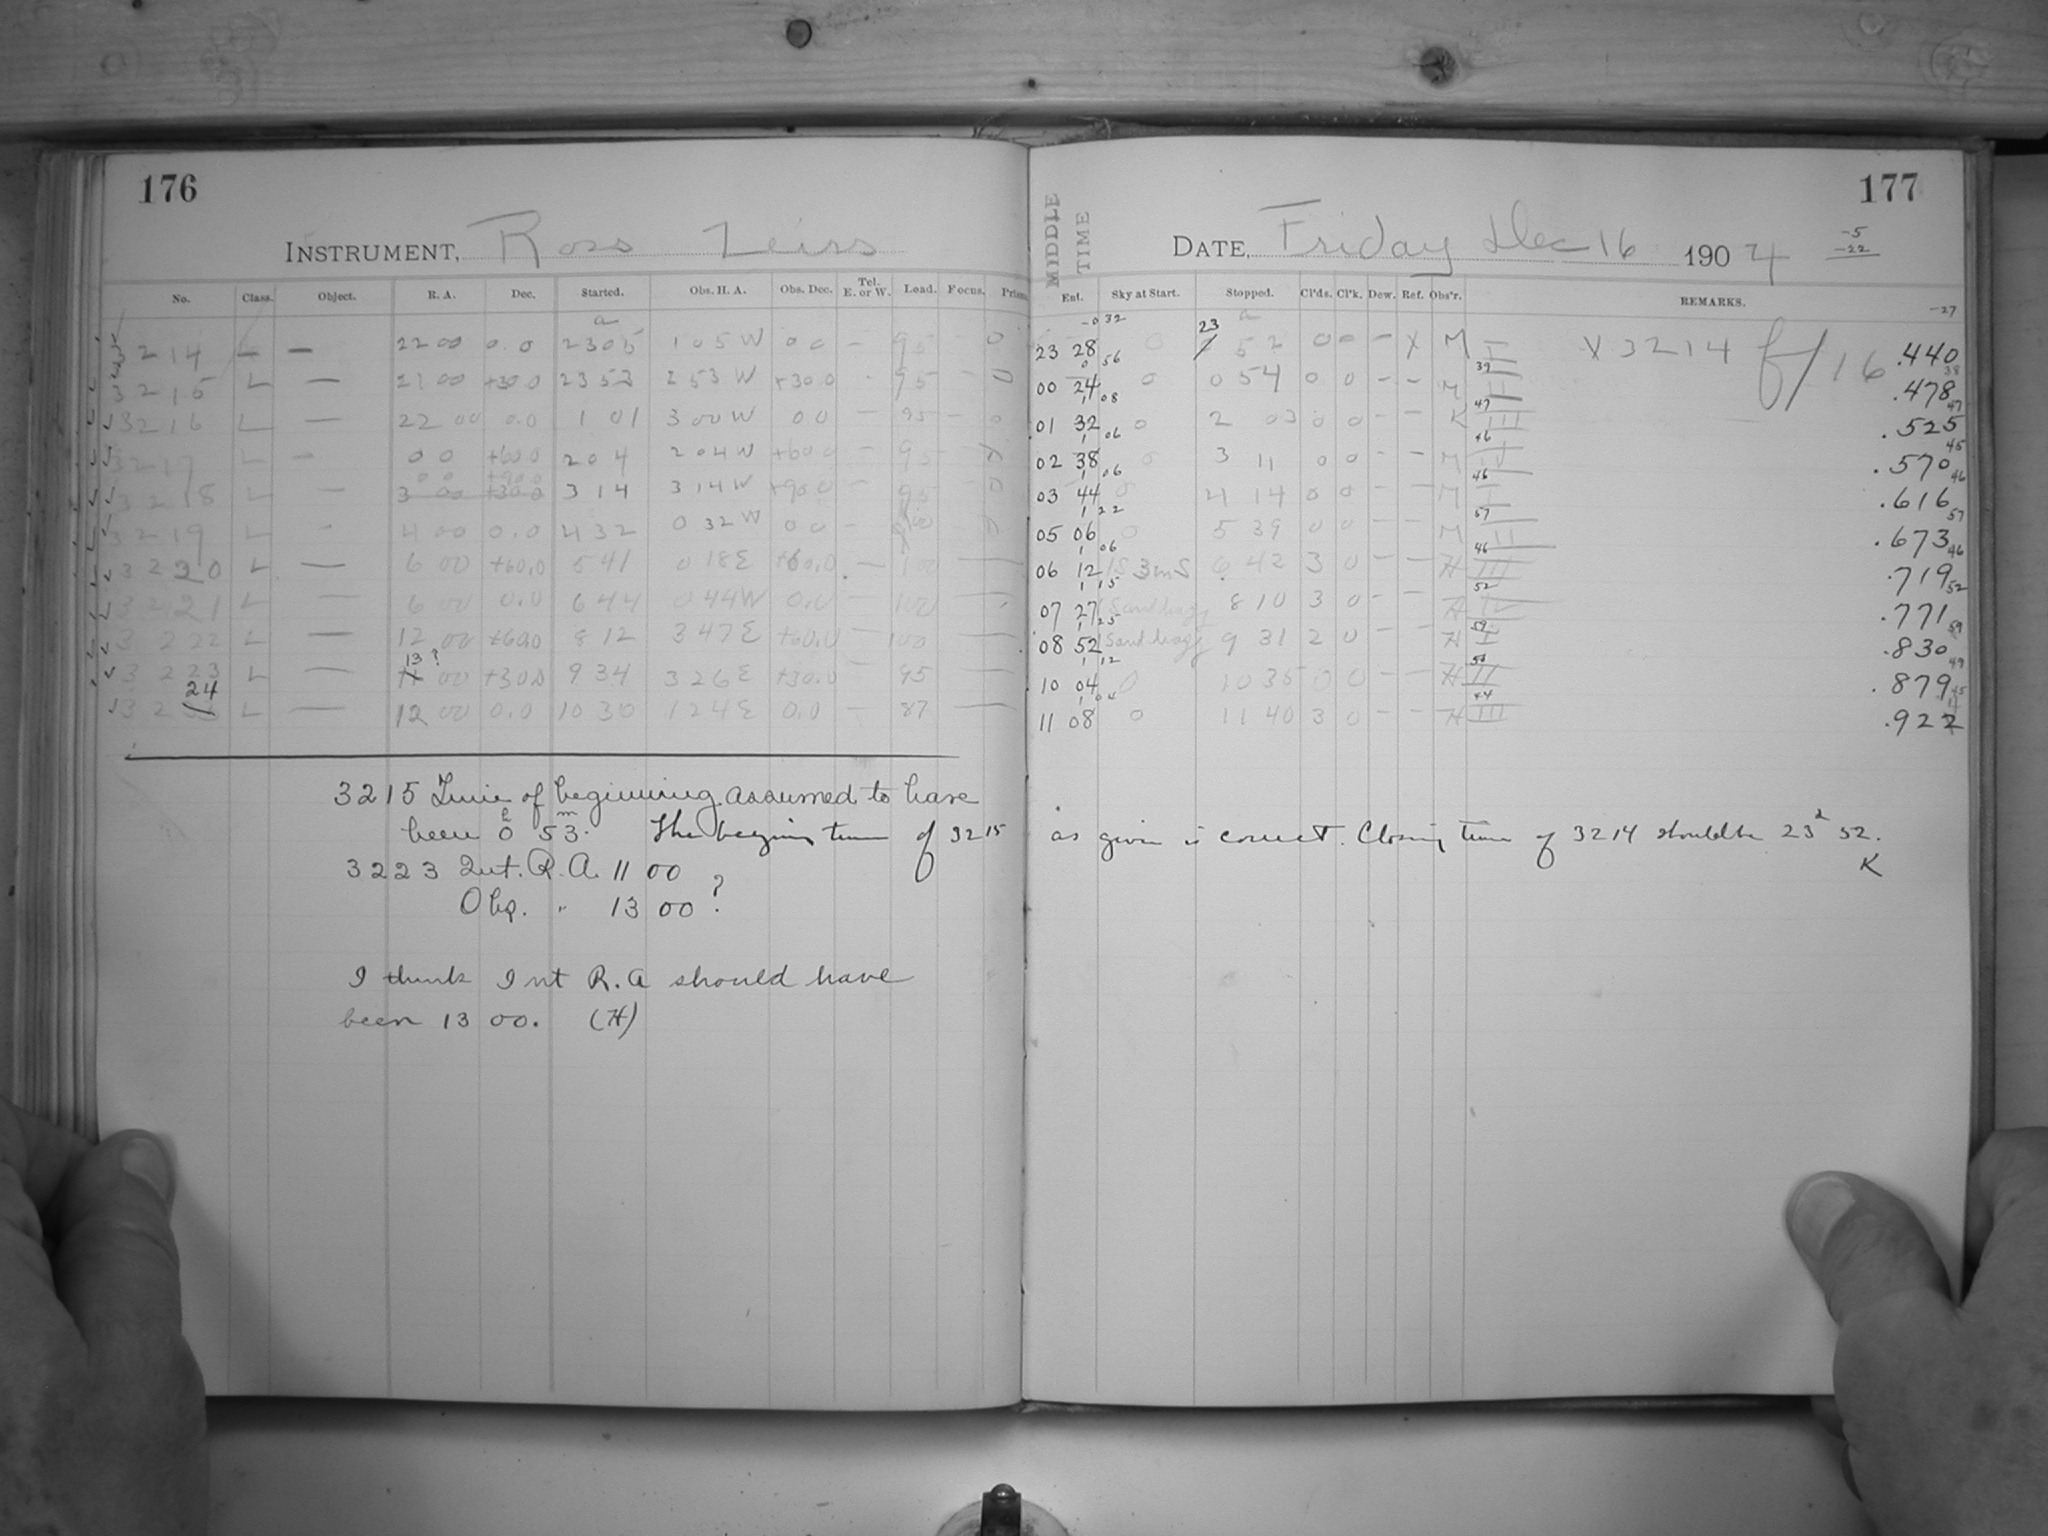 176
INSTRUMENT, Ross Zeiss
No. Class. Object. R. A. Dec. Started. Obs. H. A. Obs. Dec. Tel. E. or W. Load. Focus. Prism.
3214 L — 22 00 0.0 23 05 1 05 W 0 0 — 95 0
3215 L — 21 00 +30.0 23 53 2 53 W +30.0 95 — 0
3216 L — 22 00 0.0 1 01 3 00 W 0 0 — 95 — 0
3217 L — 0 0 +60.0 2 04 2 04 W +60.0 — 95
0 0 +90.0
3218 L — 3 00 +30.0 3 14 3 14 W +90.0 — 95
3219 L 4 00 0.0 4 32 0 32 W 0 0 —
3220 L — 6 00 +60.0 5 41 0 18 E +60.0 — 100 —
3221 L — 6 00 0.0 6 44 0 44 W 0.0 — 100
3222 L — 12 00 +60.0 8 12 3 47 E +60.0 — 100 —
13 ?
3223 L — 11 00 +30.0 9 34 3 26 E +30.0 95 —
24
32 L — 12 00 0.0 10 30 1 24 E 0.0 — 87 —
3215 Time of beginning assumed to have
been 0h 53m. The begining time of 3215
3223 Int. R.A. 11 00
Obs. " 13 00 ?
I think Int R.A should have
been 13 00. (H)
177
MIDDLE TIME
DATE, Friday Dec 16 1904
-5
-22
-27
Ent. Sky at Start. Stopped. Cl'ds. Cl'k. Dew. Ref. Obs'r. REMARKS.
23 28 0 23 52 0 0 — X M I X 3214 f/16 .440
00 24 0 0 54 0 0 — — M II .478
01 32 0 2 03 0 0 — — K III .525
02 38 0 3 11 0 0 — — M .570
03 44 0 4 14 0 0 — — M I .616
05 06 0 5 39 0 0 — — M II .673
06 12 6 42 3 0 — — H III .719
07 27 8 10 3 0 — — H .771
08 52 9 31 2 0 — — H I .830
10 04 0 10 35 0 0 — — H II .879
11 08 0 11 40 3 0 — — H III .922
as given is correct. Closing time of 3214 should be 23 52.
K